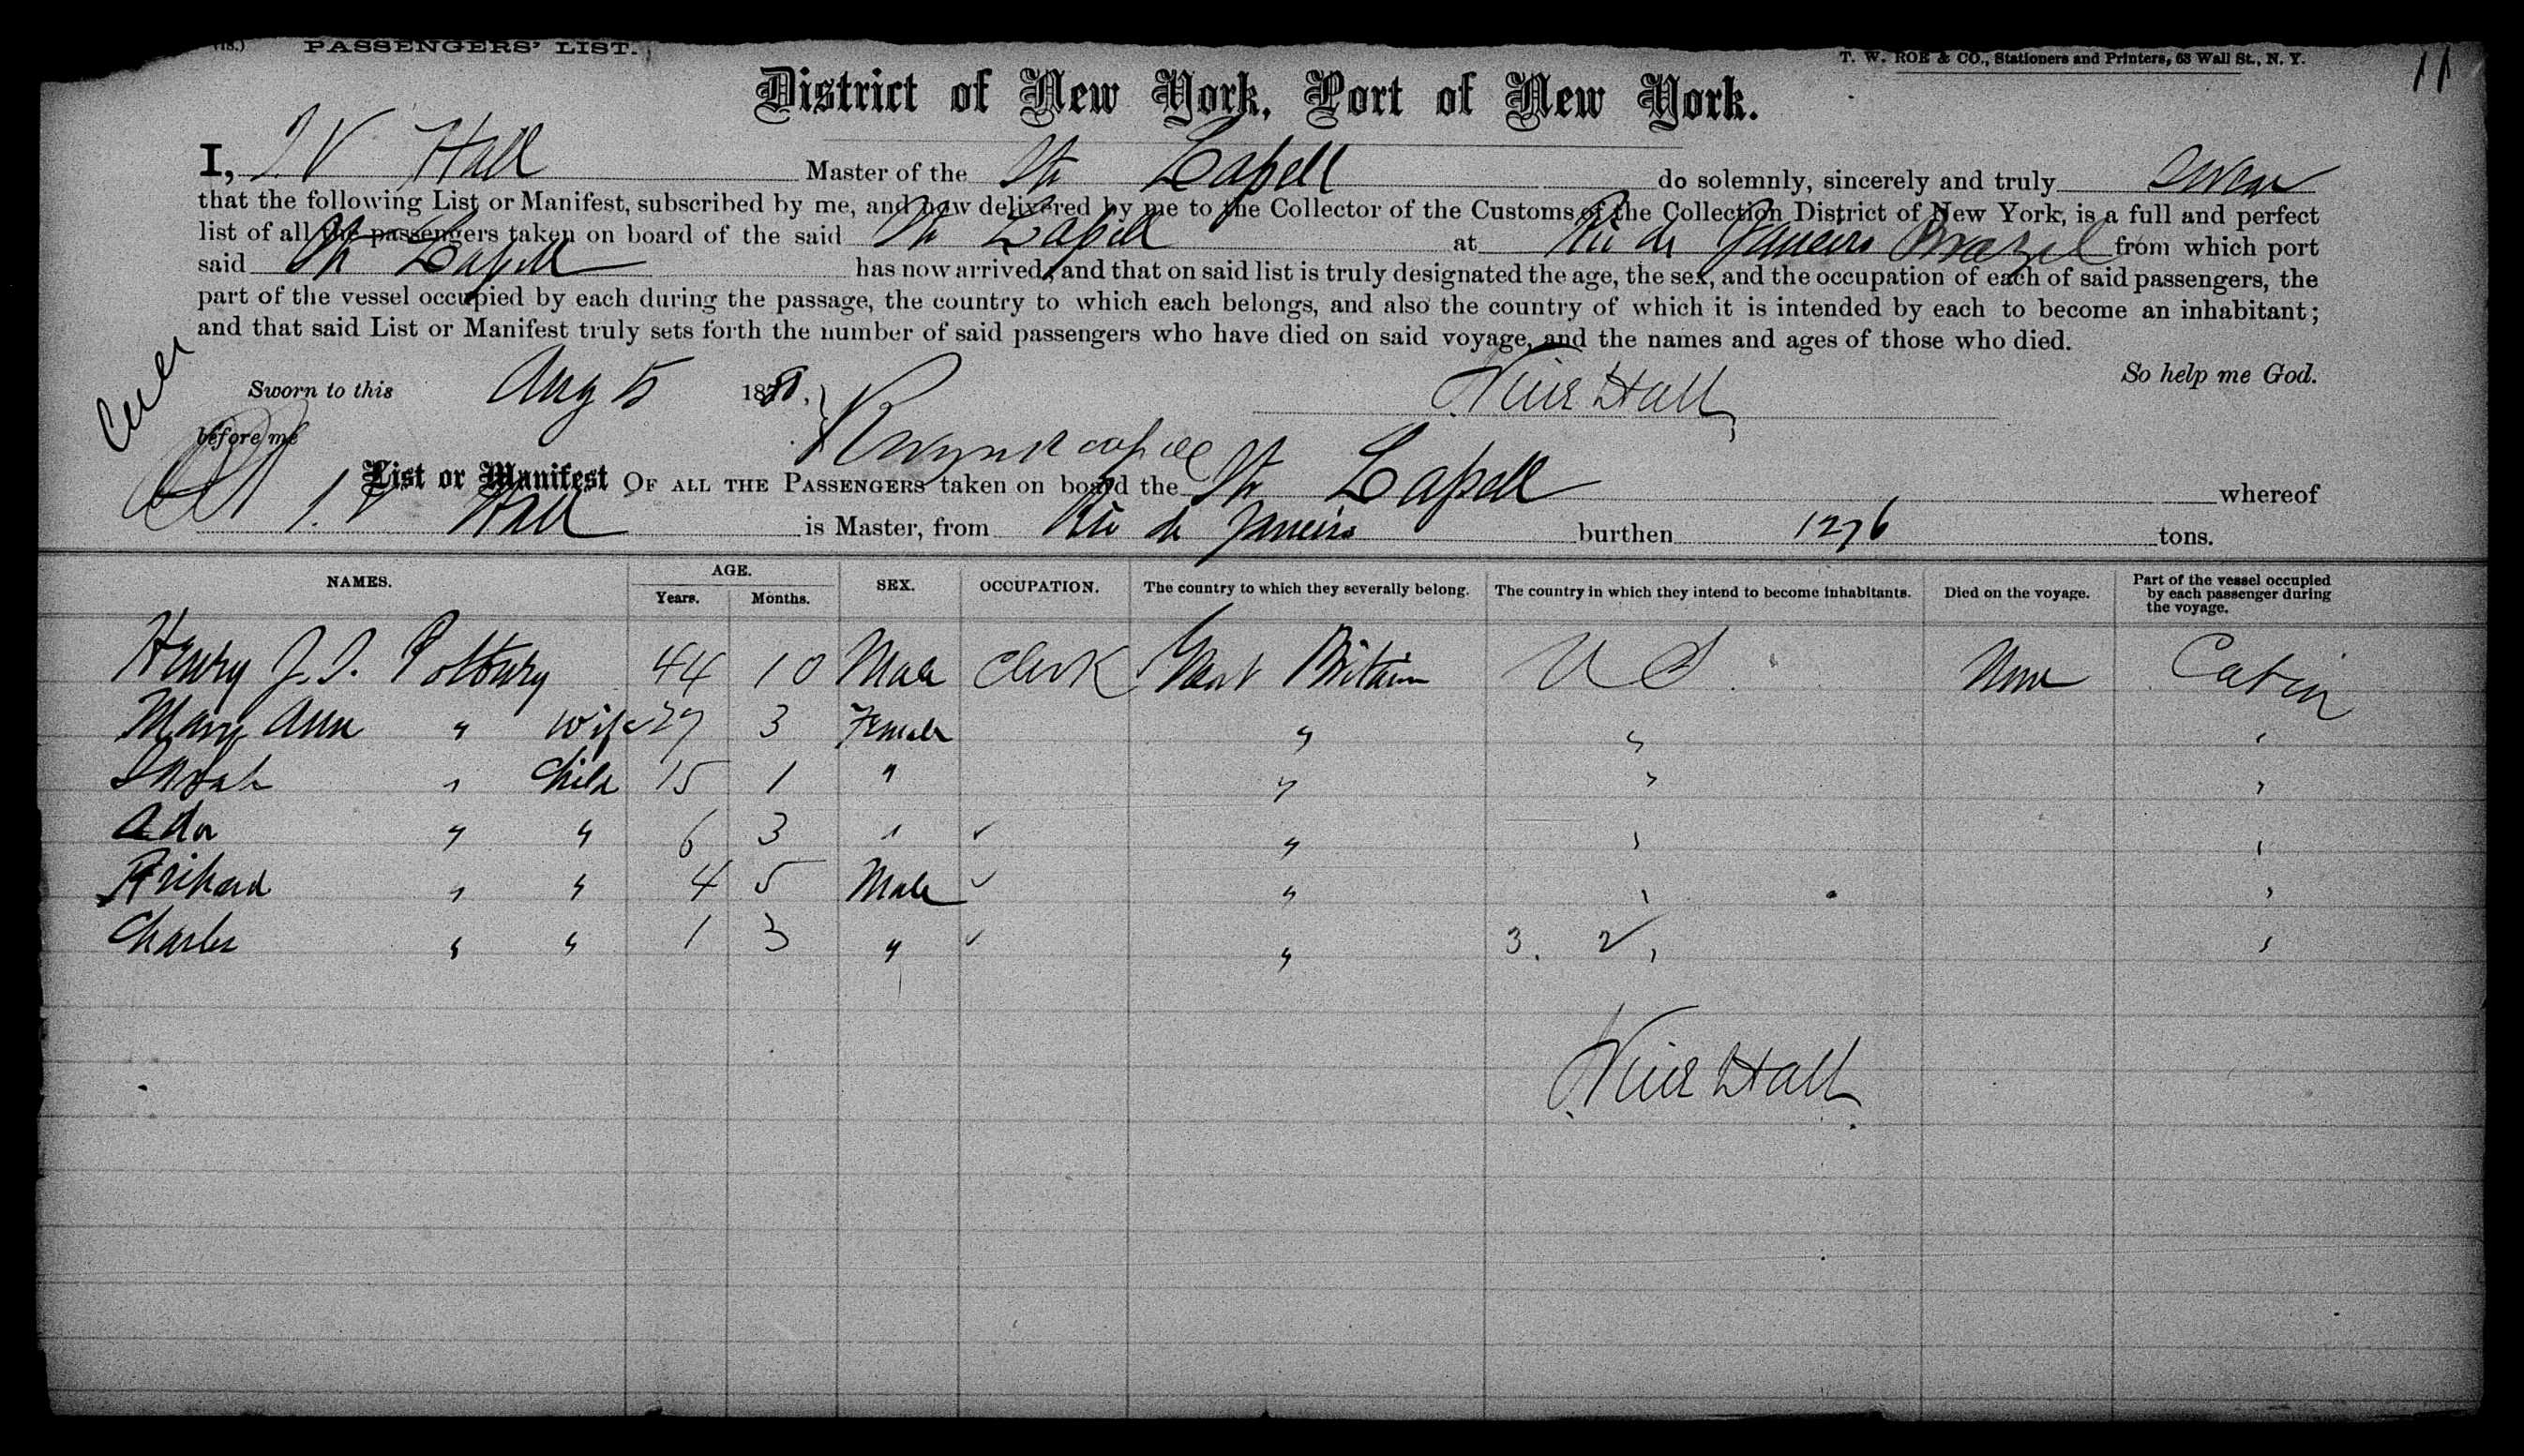 PASSENGERS' LIST.
T. W. ROE & CO., Stationers and Printers, 63 Wall St., N. Y.
11
District of New York, Port of New York.
I, J. V Hall Master of the Str Lapell do solemnly, sincerely and truly swear
that the following List or Manifest, subscribed by me, and now delivered by me to the Collector of the Customs of the Collection District of New York, is a full and perfect
list of all the passengers taken on board of the said Str Lapell at Rio de Janeiro Brazil from which port
said Str Lapell has now arrived, and that on said list is truly designated the age, the sex, and the occupation of each of said passengers, the
part of the vessel occupied by each during the passage, the country to which each belongs, and also the country of which it is intended by each to become an inhabitant;
and that said List or Manifest truly sets forth the number of said passengers who have died on said voyage, and the names and ages of those who died.
So help me God.
Sworn to this Aug 5 18
Hall
before me
List or Manifest OF ALL THE PASSENGERS taken on board the Str Lapell whereof
J. V Hall is Master, from Rio de Janeiro burthen 1276 tons.
NAMES. AGE. Years. Months. SEX. OCCUPATION. The country to which they severally belong. The country in which they intend to become inhabitants. Died on the voyage. Part of the vessel occupied by each passenger during the voyage.
Henry J. I. Potbury 44 10 Male Clerk Great Britain U S. None Cabin
Mary Ann " Wife 3 Female " " "
Sarah " Child 15 1 " " " "
Ada " " 6 3 " ✓ " " "
Prichard " " 4 5 Male ✓ " " "
Charles " " 1 3 " ✓ " 3. 2 " "
Hall